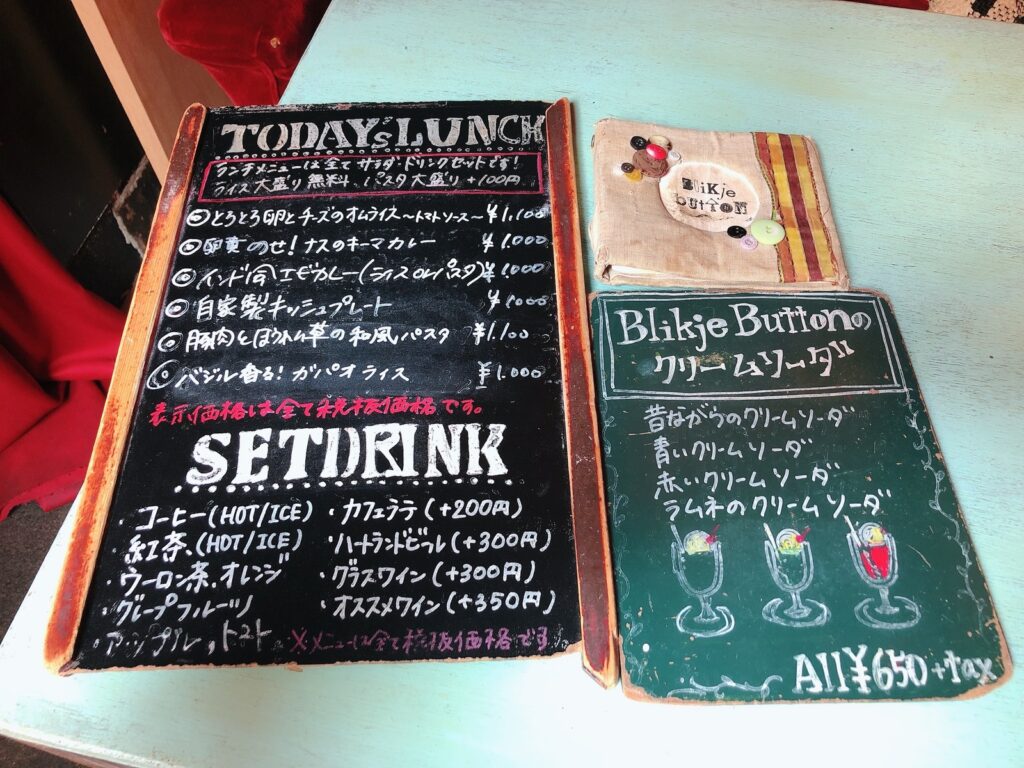 TODAY'S LUNCH
ランチメニューは全てサラダ・ドリンクセットです!
ライス大盛り無料、パスタ大盛り+100円
とろとろ卵とチーズのオムライス~トマトソース~ ¥1.100
卵黄のせ!ナスのキーマカレー ¥1.000
インド風エビカレー(ライスorパスタ) ¥1.000
自家製キッシュプレート ¥1.000
豚肉とほうれん草の和風パスタ ¥1.100
バジル香る!ガパオライス ¥1.000
表示価格は全て税抜価格です。
SETDRINK
・コーヒー(HOT/ICE)
・紅茶、(HOT/ICE)
・ウーロン茶、オレンジ
・グレープフルーツ
・アップル、トマト
・カフェラテ(+200円)
・ハートランドビール(+300円)
・グラスワイン(+300円)
・オススメワイン(+350円)
※メニューは全て税抜価格です
Blikje
buttoN
Blikje Buttonの
クリームソーダ
昔ながらのクリームソーダ
青いクリームソーダ
赤いクリームソーダ
ラムネのクリームソーダ
All¥650+tax